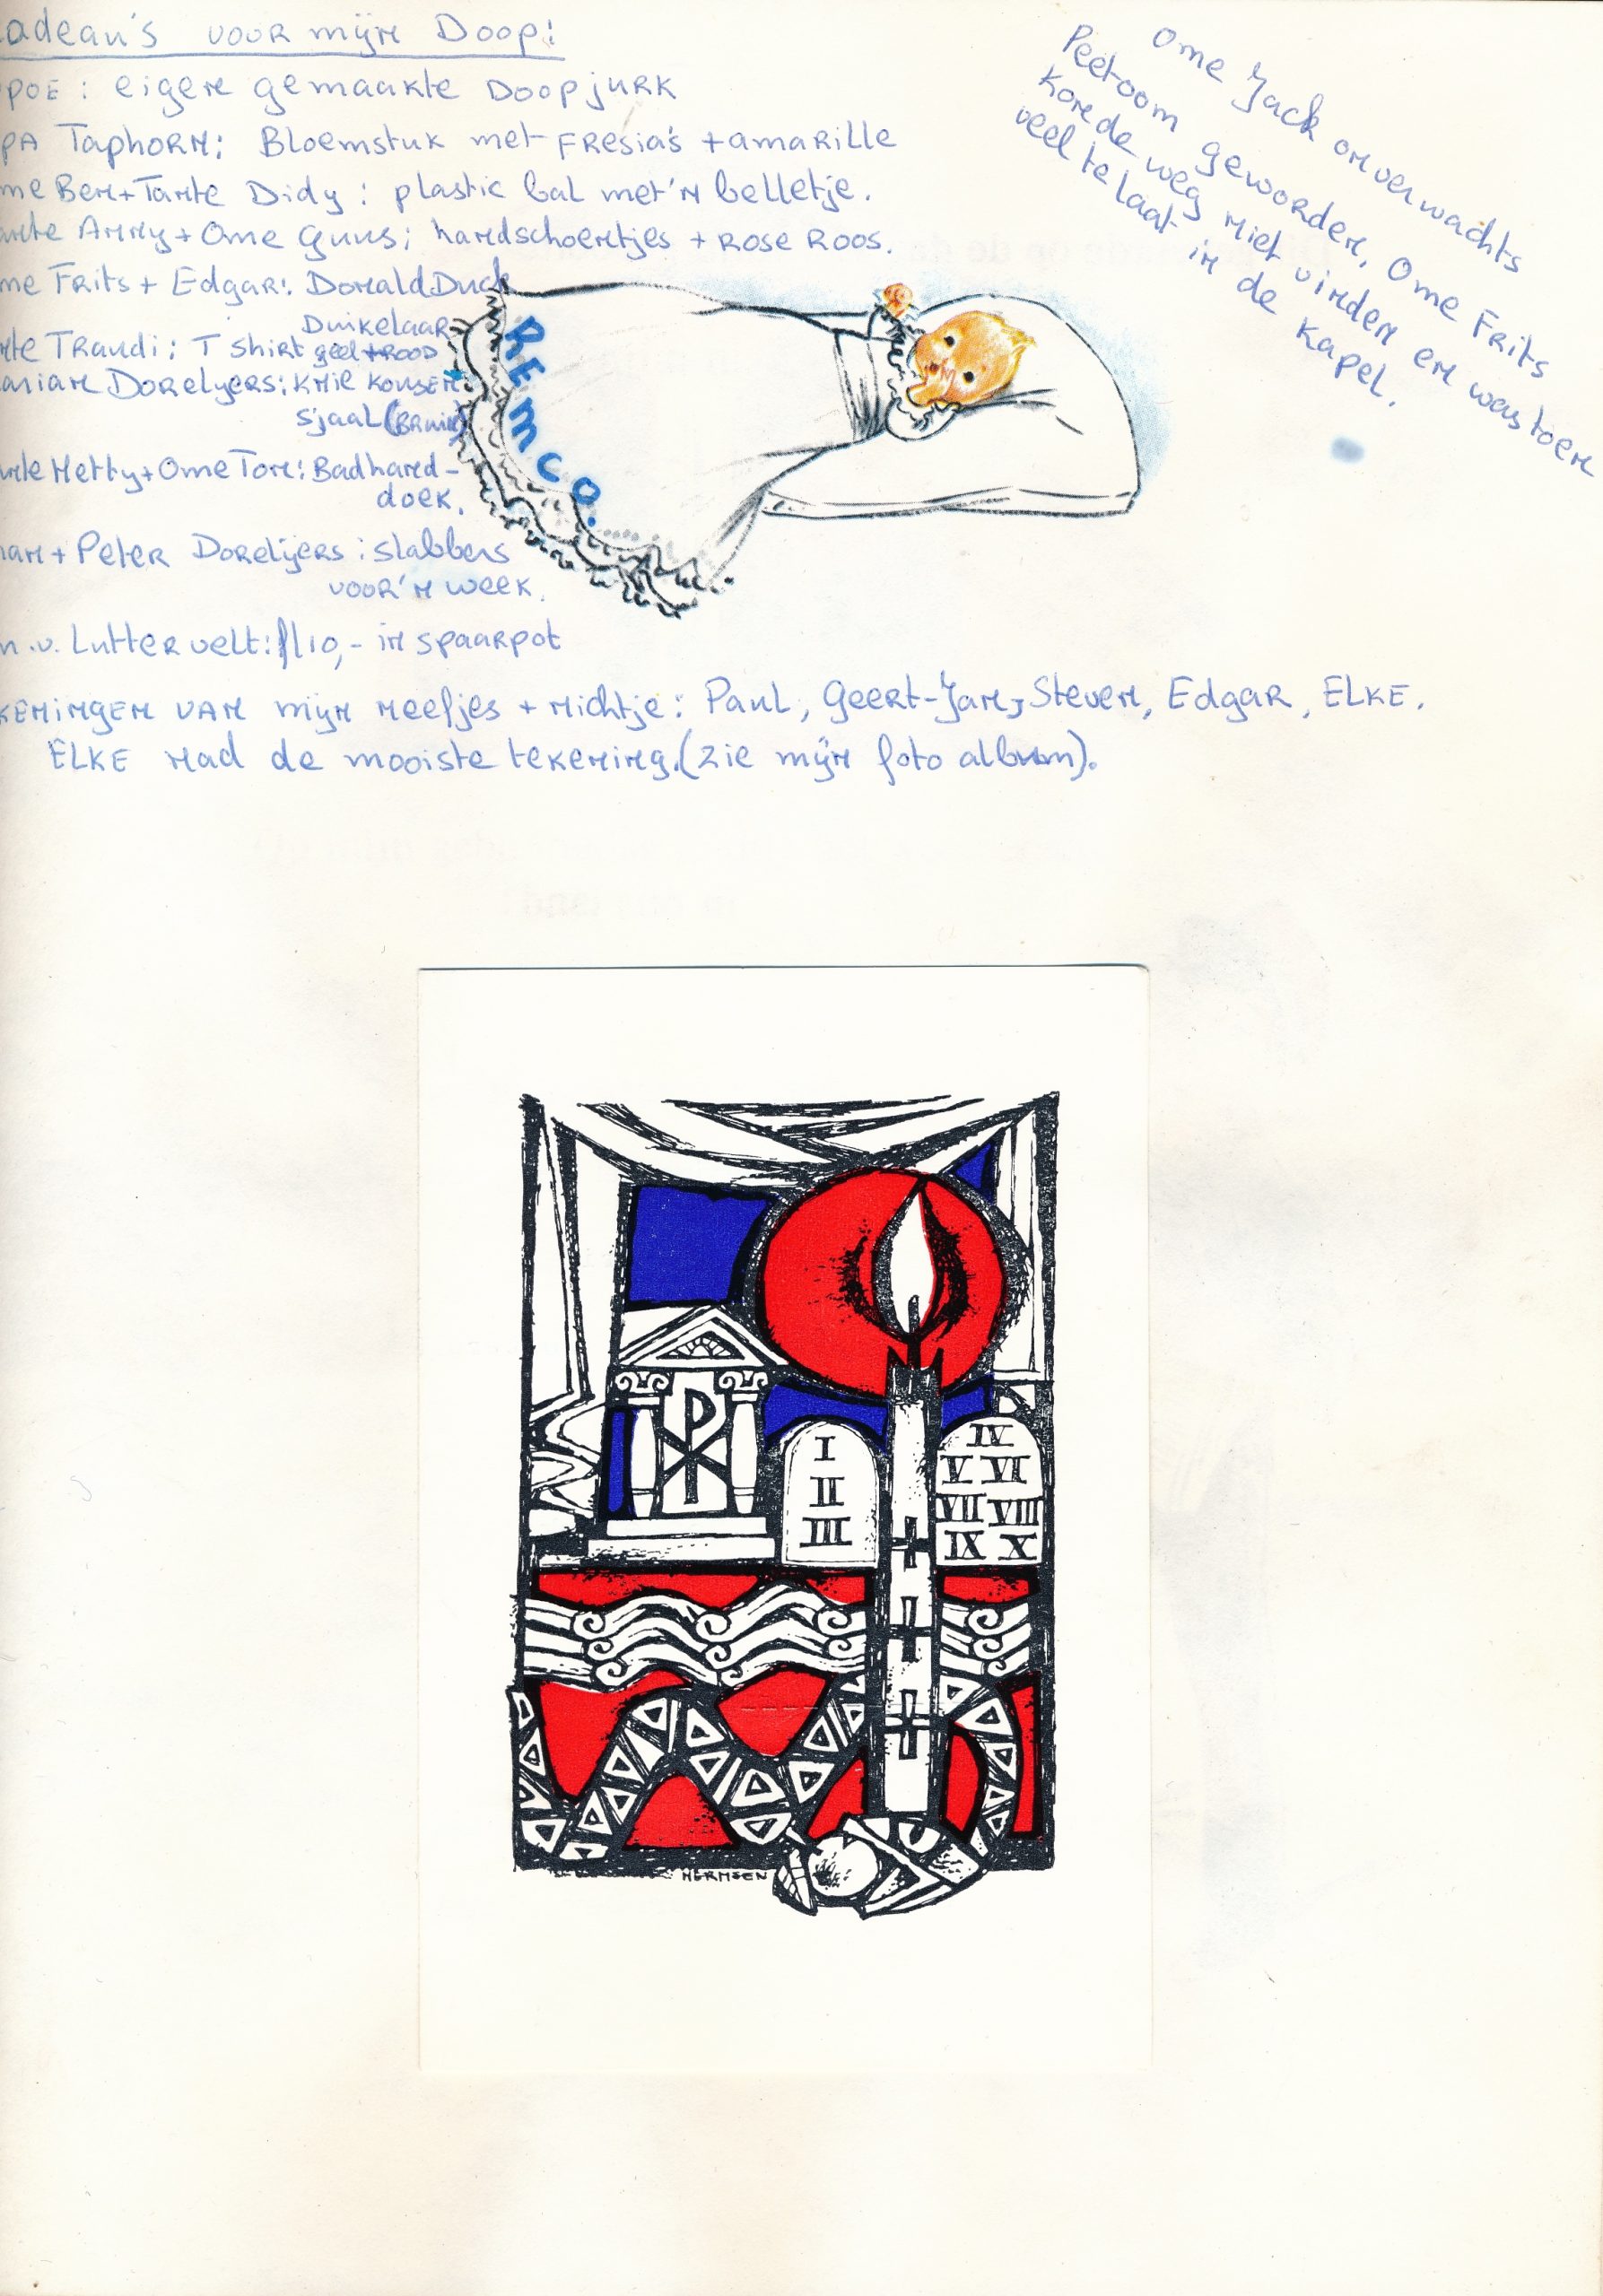 adeau's voor mijn Doop!
poe: eigen gemaakte Doopjurk
pa Taphorn: Bloemstuk met Fresia's + amarille
me Ben + Tante Didy: plastic bal met 'n belletje.
ante Anny + Ome Guus: handschoentjes + Rose Roos.
me Frits + Edgar: Donald Duck
Duikelaar
nte Traudi: T shirt geel + rood
arian Dorelijers: knie kousen
Sjaal (Bruin)
ante Hetty + Ome Ton: Badhand-
doek.
han + Peter Dorelijers: slabbers
voor 'n week.
v. Luttervelt: fl 10,- in spaarpot
keningen van mijn neefjes + nichtje: Paul, Geert-Jan, Steven, Edgar, Elke.
Elke had de mooiste tekening. (zie mijn foto album).
Ome Jack onverwachts
Peetoom geworden. Ome Frits
Konde weg niet vinden en was toen
veel te laat in de kapel.
Remco.
I
II
III
IV
V VI
VII VIII
IX X
HERMSEN